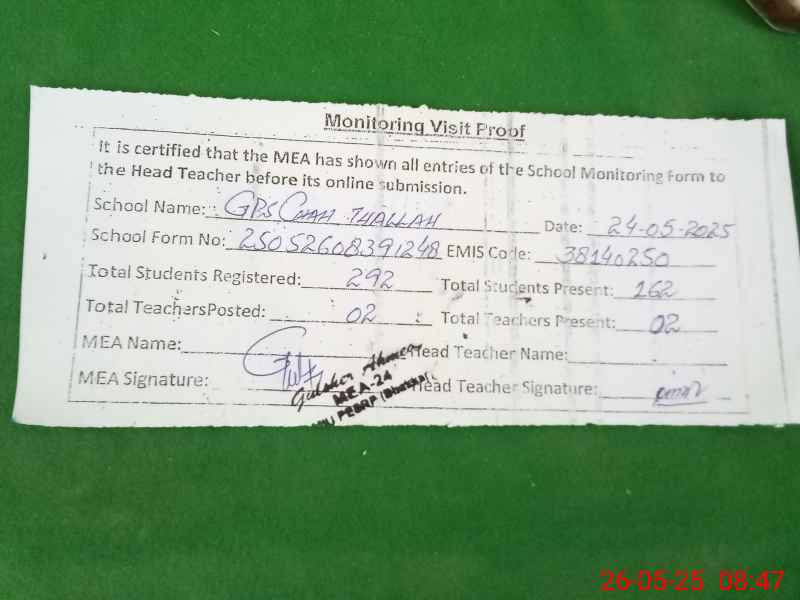 Monitoring Visit Proof
It is certified that the MEA has shown all entries of the School Monitoring Form to
the Head Teacher before its online submission.
School Name: GPS CHAH THALLAH Date: 24-05-2025
School Form No: 25052608391248 EMIS Code: 38140250
Total Students Registered: 292 Total Students Present: 162
Total TeachersPosted: 02 Total Teachers Present: 02
MEA Name: Head Teacher Name:
MEA Signature: Gulsher Ahmed Head Teacher Signature:
MEA-24
26-05-25 08:47